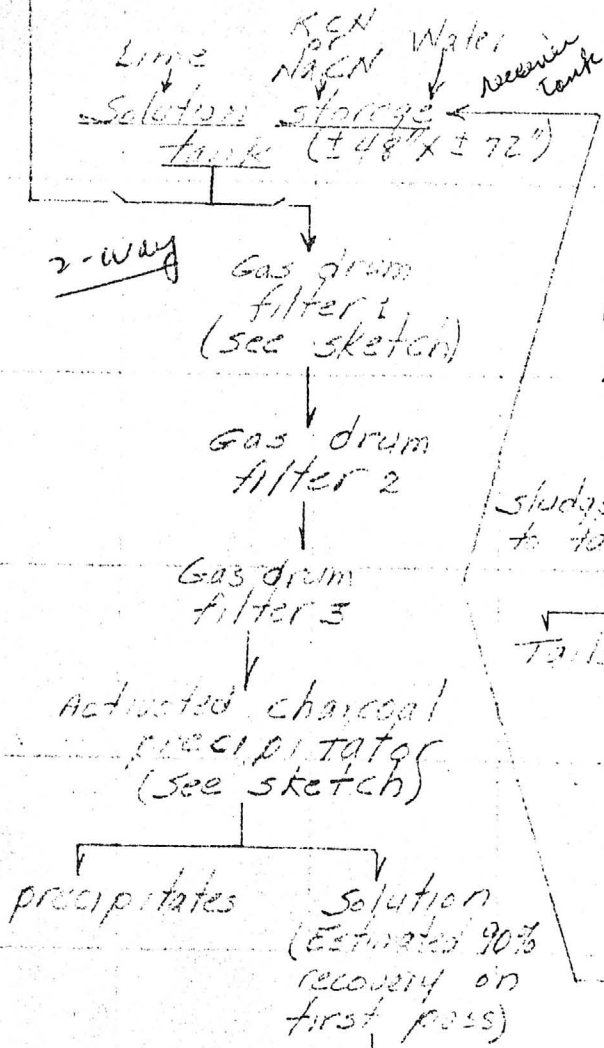 KCN
or
Lime NaCN Water
receiver
tank
Solution storage
tank (±48"x±72")
2-way
Gas drum
filter 1
(see sketch)
Gas drum
filter 2
sludge
to
Gas drum
filter 3
Tails
Activated charcoal
precipitator
(see sketch)
precipitates
Solution
(Estimated 90%
recovery on
first pass)